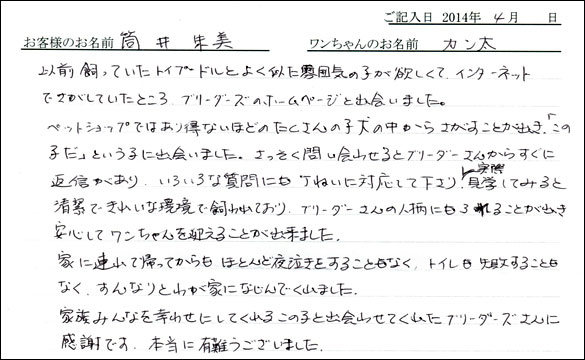 ご記入日 2014年 4月 日
お客様のお名前 筒井朱美 ワンちゃんのお名前 カン太
以前飼っていたトイプードルとよく似た雰囲気の子が欲しくて、インターネット
でさがしていたところ、ブリーダーズのホームページと出会いました。
ペットショップではあり得ないほどのたくさんの子犬の中からさがすことが出き、「この
子だ」という子に出会いました。さっそく問い合わせるとブリーダーさんからすぐに
返信があり、いろいろな質問にも丁ねいに対応して下さり、実際見学してみると
清潔できれいな環境で飼われており、ブリーダーさんの人柄にもふれることが出き
安心してワンちゃんを迎えることが出来ました。
家に連れて帰ってからもほとんど夜泣きをすることもなく、トイレも失敗することも
なく、すんなりとわが家になじんでくれました。
家族みんなを幸わせにしてくれるこの子と出会わせてくれたブリーダーズさんに
感謝です。本当に有難うございました。